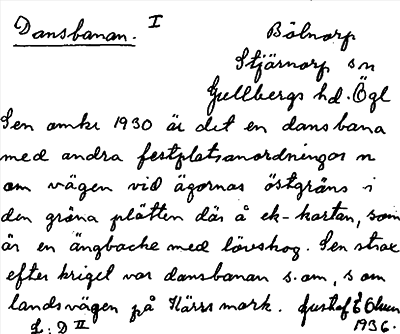 Dansbanan. I
Bölnorp
Stjärnorp sn
Gullbergs hd. Ögl
Sen omkr 1930 är det en dansbana
med andra festplatsanordningar n
om vägen vid ägornas östgräns i
den gröna plätten där å ek-kartan, som
är en ängbacke med lövskog. Sen strax
efter kriget var dansbanan s.om, s om
landsvägen på Härrs mark. Gustaf E Olsson
L: D II 1936.